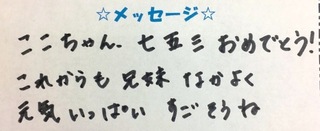 ☆メッセージ☆
ここちゃん、七五三 おめでとう!
これからも 兄妹 なかよく
元気 いっぱい すごそうね